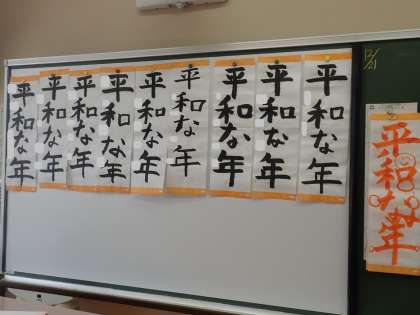 平和な年
平和な年
平和な年
平和な年
平和な年
平和な年
平和な年
平和な年
平和な年
12/21
平和な年